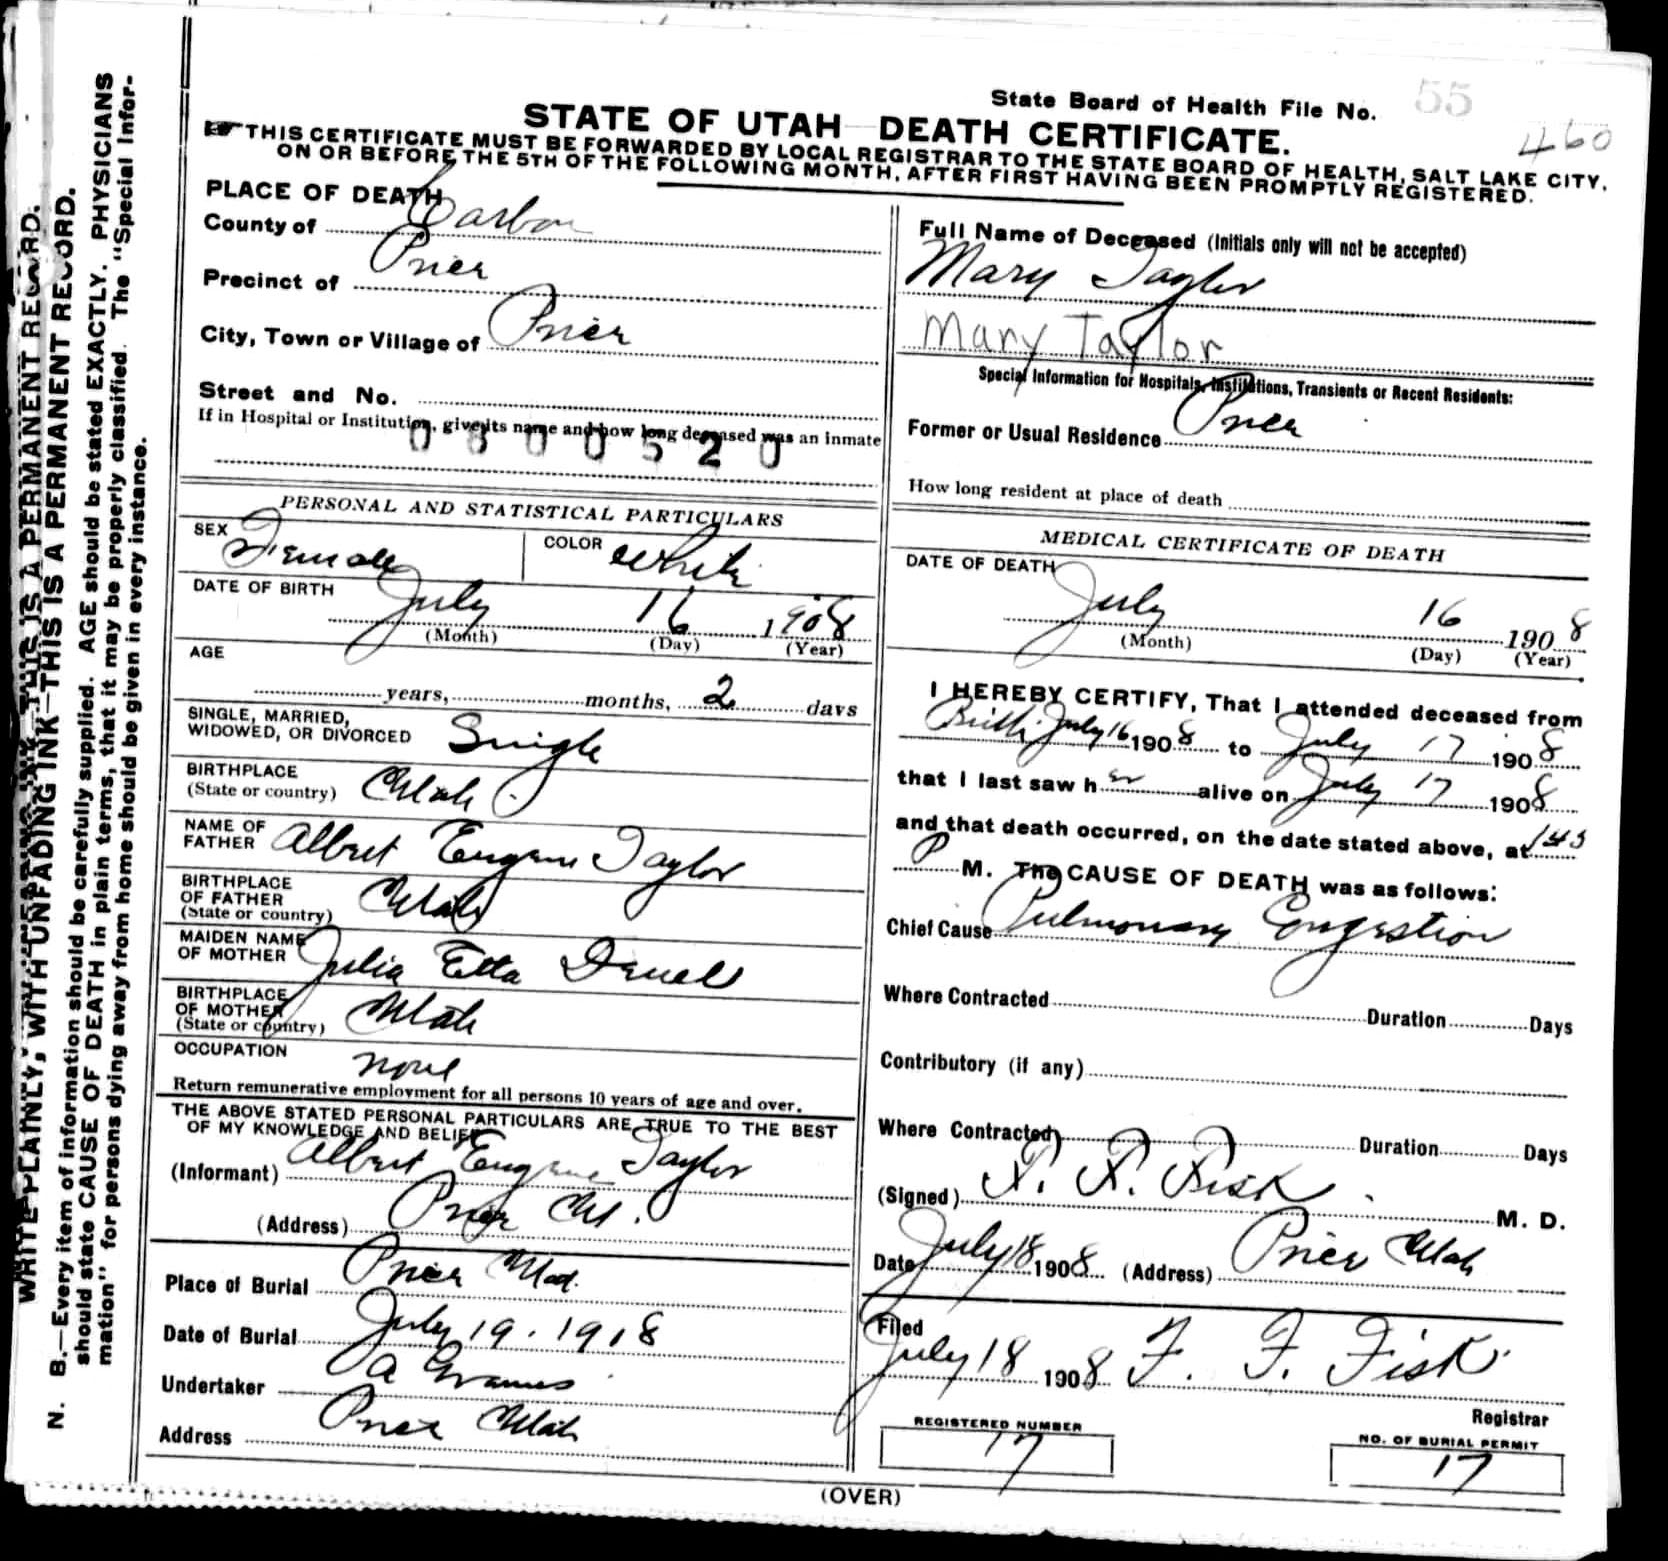 State Board of Health File No. 55
460
STATE OF UTAH DEATH CERTIFICATE.
THIS CERTIFICATE MUST BE FORWARDED BY LOCAL REGISTRAR TO THE STATE BOARD OF HEALTH, SALT LAKE CITY,
ON OR BEFORE THE 5TH OF THE FOLLOWING MONTH, AFTER FIRST HAVING BEEN PROMPTLY REGISTERED.
WRITE PLAINLY, WITH UNFADING INK—THIS IS A PERMANENT RECORD.
N. B.—Every item of information should be carefully supplied. AGE should be stated EXACTLY. PHYSICIANS
should state CAUSE OF DEATH in plain terms, that it may be properly classified. The "Special Infor-
mation" for persons dying away from home should be given in every instance.
PLACE OF DEATH
County of Carbon
Precinct of Price
City, Town or Village of Price
Street and No.
If in Hospital or Institution, give its name and how long deceased was an inmate
0800520
PERSONAL AND STATISTICAL PARTICULARS
SEX Female COLOR White
DATE OF BIRTH July 16 1908
(Month) (Day) (Year)
AGE
years, months, 2 days
SINGLE, MARRIED,
WIDOWED, OR DIVORCED Single
BIRTHPLACE
(State or country) Utah
NAME OF
FATHER Albert Eugene Taylor
BIRTHPLACE
OF FATHER
(State or country) Utah
MAIDEN NAME
OF MOTHER Julia Etta
BIRTHPLACE
OF MOTHER
(State or country) Utah
OCCUPATION none
Return remunerative employment for all persons 10 years of age and over.
THE ABOVE STATED PERSONAL PARTICULARS ARE TRUE TO THE BEST
OF MY KNOWLEDGE AND BELIEF
(Informant) Albert Eugene Taylor
(Address) Price Ut.
Place of Burial Price Utah
Date of Burial July 19. 1918
Undertaker A
Address Price Utah
Full Name of Deceased (Initials only will not be accepted)
Mary Taylor
Mary Taylor
Special Information for Hospitals, Institutions, Transients or Recent Residents:
Former or Usual Residence Price
How long resident at place of death
MEDICAL CERTIFICATE OF DEATH
DATE OF DEATH
July 16 1908
(Month) (Day) (Year)
I HEREBY CERTIFY, That I attended deceased from
Birth July 16 1908 to July 17 1908
that I last saw her alive on July 17 1908
and that death occurred, on the date stated above, at 145
P M. The CAUSE OF DEATH was as follows:
Chief Cause Pulmonary Congestion
Where Contracted Duration Days
Contributory (if any)
Where Contracted Duration Days
(Signed) F. F. Fisk M. D.
Date July 18 1908 (Address) Price Utah
Filed
July 18 1908 F. F. Fisk
Registrar
REGISTERED NUMBER
17
NO. OF BURIAL PERMIT
17
(OVER)